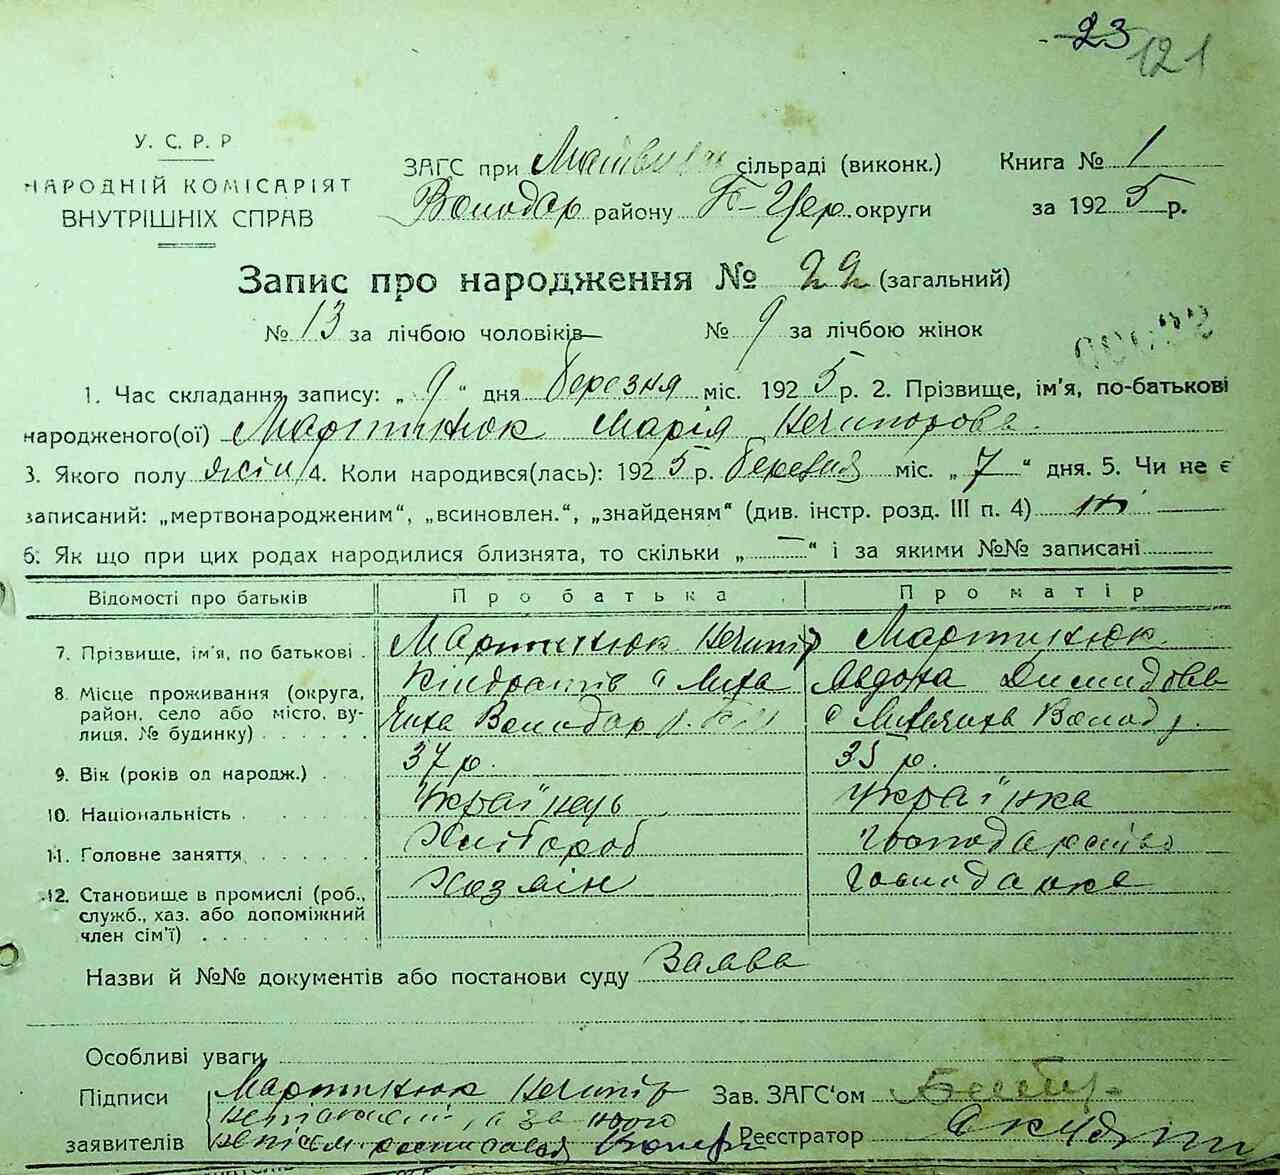 23
121
У. С. Р. Р
НАРОДНІЙ КОМІСАРІЯТ
ВНУТРІШНІХ СПРАВ
ЗАГС при сільраді (виконк.) Книга № 1
Володар району Б-Цер. округи за 1925 р.
Запис про народження № 22 (загальний)
№ 13 за лічбою чоловіків № 9 за лічбою жінок
1. Час складання запису: „ 9 “ дня березня міс. 1925 р. 2. Прізвище, ім'я, по-батькові
народженого(ої) Мартинюк Марія Нечипорова
3. Якого полу жін 4. Коли народився(лась): 1925 р. березня міс. „ 7 “ дня. 5. Чи не є
записаний: „мертвонародженим“, „всиновлен.“, „знайденям“ (див. інстр. розд. III п. 4)
6. Як що при цих родах народилися близнята, то скільки „ — “ і за якими №№ записані
Відомості про батьків Про батька Про матір
7. Прізвище, ім'я, по батькові Мартинюк Нечипір Мартинюк
Кіндратів Явдоха Демидова
8. Місце проживання (округа, район, село або місто, вулиця, № будинку) Володар с Волод р.
9. Вік (років од народж.) 37 р. 35 р.
10. Національність Українець Українка
11. Головне заняття Хлібороб Господарство
12. Становище в промислі (роб., служб., хаз. або допоміжний член сім'ї) Хазяїн Господарка
Назви й №№ документів або постанови суду Заява
Особливі уваги
Підписи заявителів Мартинюк Нечипір
а за нього
Зав. ЗАГС'ом
Реєстратор